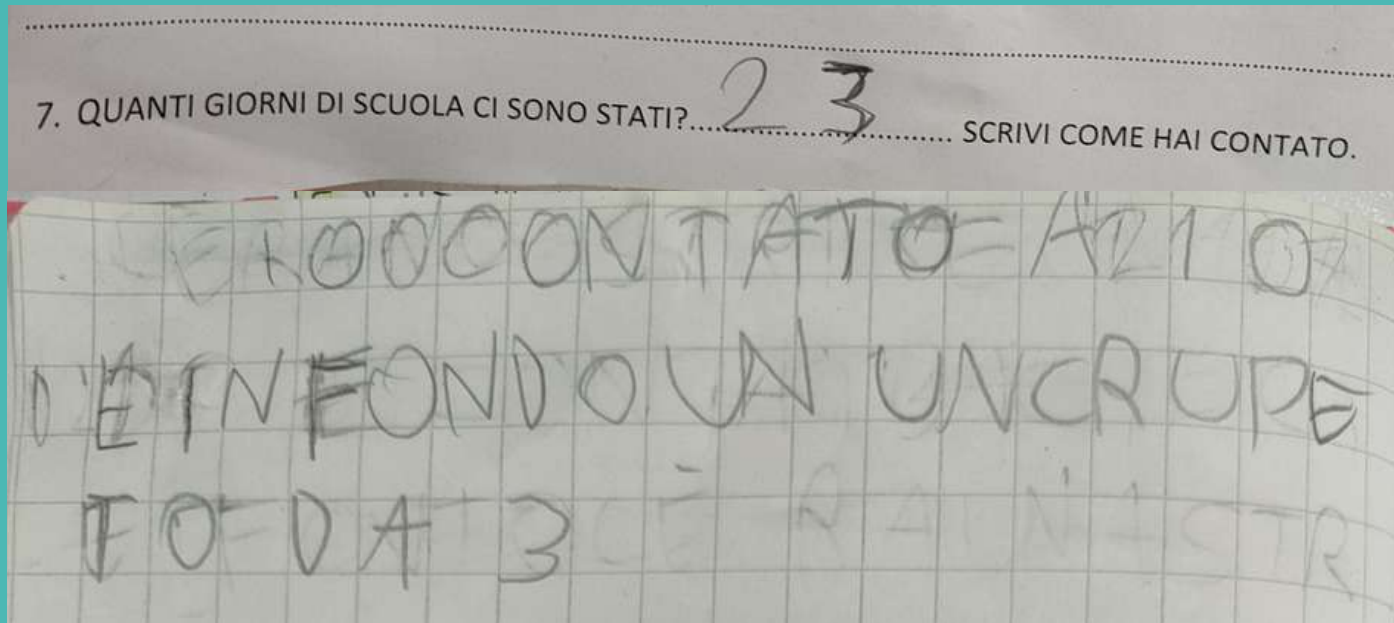 7. QUANTI GIORNI DI SCUOLA CI SONO STATI? 23 SCRIVI COME HAI CONTATO.
CONTATO A 2 10
E IN FONDO UN UN CRUPE
TO DA 3